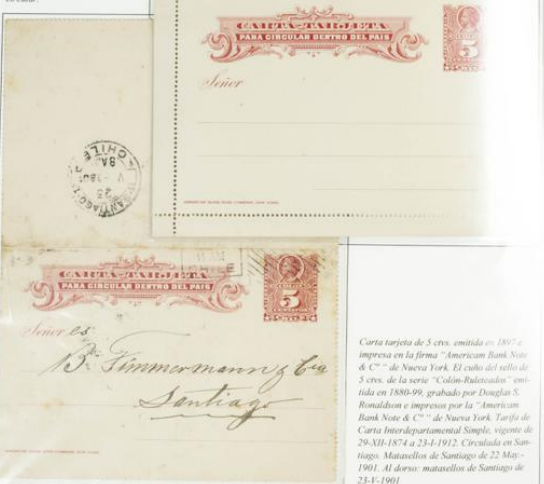 CARTA-TARJETA
PARA CIRCULAR DENTRO DEL PAIS
5
Señor
SANTIAGO
CHILE
23
V
CARTA-TARJETA
PARA CIRCULAR DENTRO DEL PAIS
5
Señor es
B. Timmermann y Cia
Santiago
Carta tarjeta de 5 ctvs. emitida en 1897 e
impresa en la firma "American Bank Note
& Cº " de Nueva York. El cuño del sello de
5 ctvs. de la serie "Colón-Ruleteados" emi-
tida en 1880-99, grabado por Douglas S.
Ronaldson e impresos por la "American
Bank Note & Cº " de Nueva York. Tarifa de
Carta Interdepartamental Simple, vigente de
29-XII-1874 a 23-I-1912. Circulada en San-
tiago. Matasellos de Santiago de 22 May.-
1901. Al dorso: matasellos de Santiago de
23-V-1901